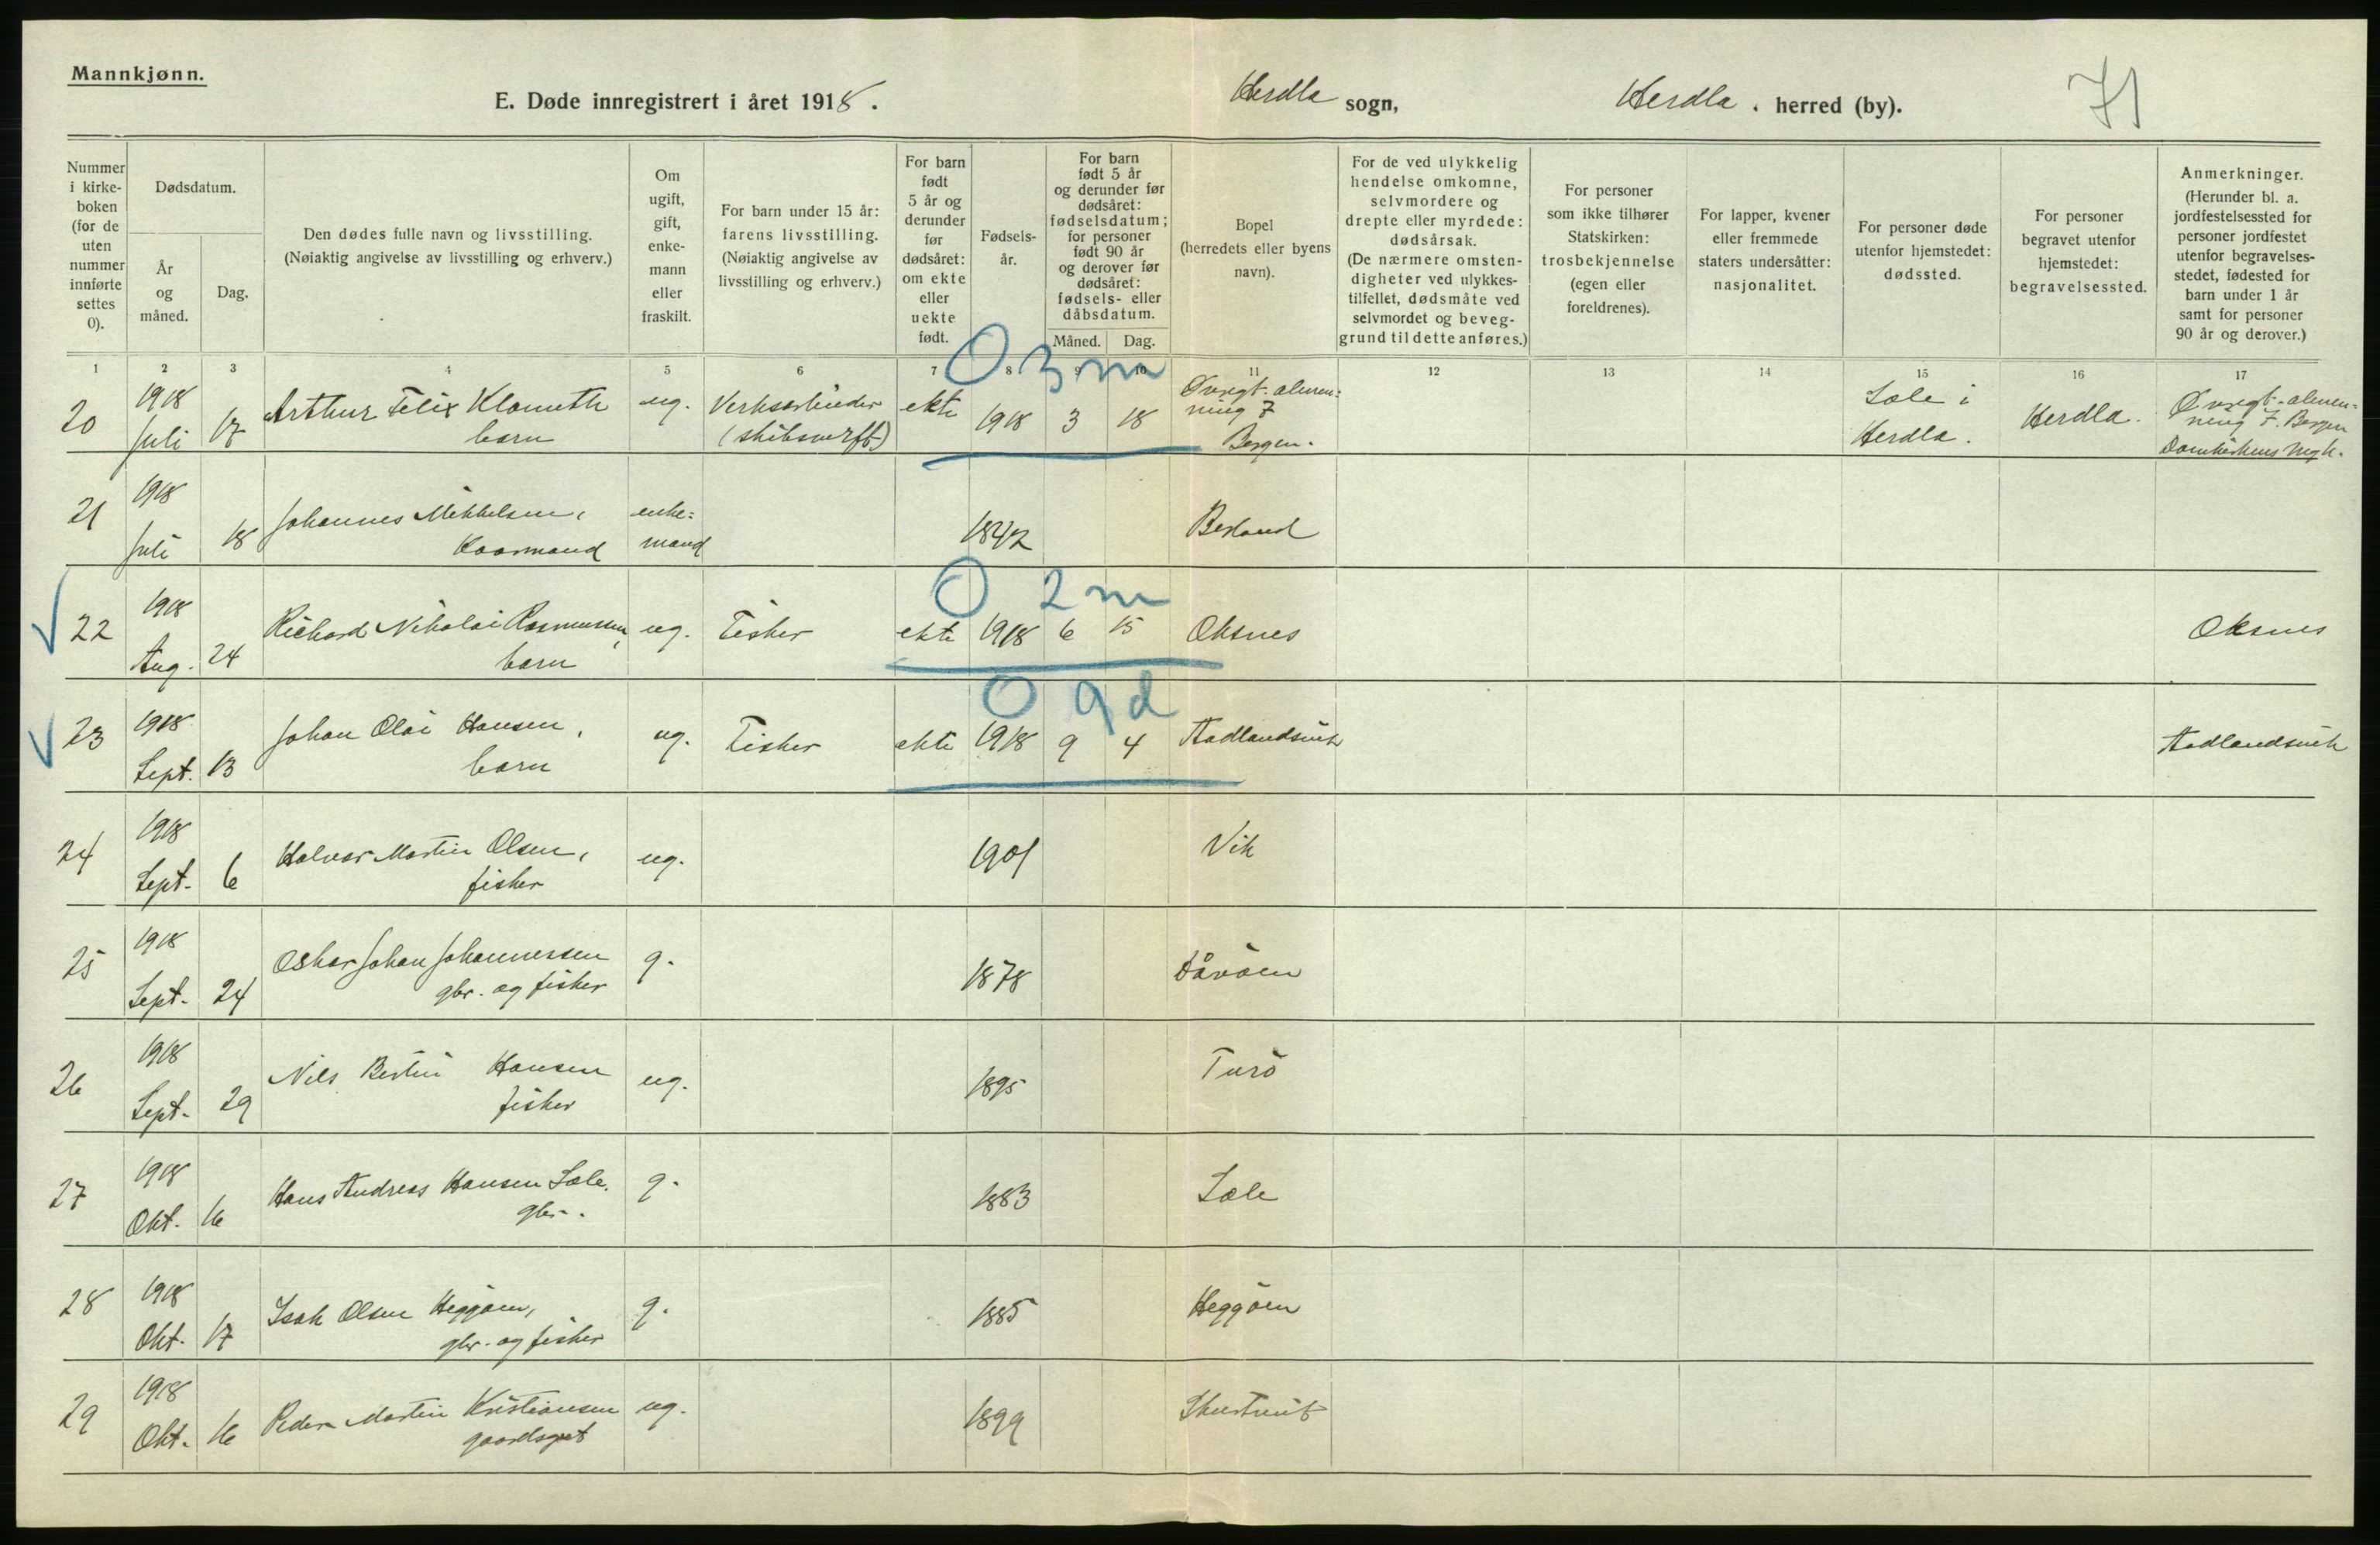 Mannkjønn.
E. Døde innregistrert i året 1918.
Herdla sogn,
Herdla. herred (by).
71
Nummer i kirke- boken (for de uten nummer innførte settes 0).
Dødsdatum.
År og måned.
Dag.
Den dødes fulle navn og livsstilling.
(Nøiaktig angivelse av livsstilling og erhverv.)
Om ugift, gift, enke- mann eller fraskilt.
For barn under 15 år: farens livsstilling. (Nøiaktig angivelse av livsstilling og erhverv.)
For barn født 5 år og derunder før dødsåret: om ekte eller uekte født.
Fødsels- år.
For barn født 5 år og derunder før dødsåret: fødselsdatum; for personer født 90 år og derover før dødsåret: fødsels- eller dåbsdatum.
Måned. Dag.
Bopel (herredets eller byens navn).
For de ved ulykkelig hendelse omkomne, selvmordere og drepte eller myrdede: dødsårsak. (De nærmere omsten- digheter ved ulykkes- tilfellet, dødsmåte ved selvmordet og beveg- grund til dette anføres.)
For personer som ikke tilhører Statskirken: trosbekjennelse (egen eller foreldrenes).
For lapper, kvener eller fremmede staters undersåtter: nasjonalitet.
For personer døde utenfor hjemstedet: dødssted.
For personer begravet utenfor hjemstedet: begravelsessted.
Anmerkninger. (Herunder bl. a. jordfestelsessted for personer jordfestet utenfor begravelses- stedet, fødested for barn under 1 år samt for personer 90 år og derover.)
1 2 3 4 5 6 7 8 9 10 11 12 13 14 15 16 17
0 3 m
20 1918 Juli 17 Arthur Felix Klometh barn ug. Verksarbeider (skibsverft) ekte 1918 3 18 Øvregt. almen= ning 7 Bergen. Sole i Herdla. Herdla. Øvregt. almen= ning 7. Bergen Domkirkens mgh.
21 1918 Juli 18 Johannes Mikkelsen, Kaarmand enke= mand 1842 Berland
0 2 m
22 1918 Aug. 24 Richard Nikolai Rasmussen, barn ug. Fisker ekte 1918 6 15 Oksnes Oksnes
0 9 d
23 1918 Sept. 13 Johan Olai Hansen, barn ug. Fisker ekte 1918 9 4 Aadlandsvik Aadlandsvik
24 1918 Sept. 6 Halvar Martin Olsen, fisker ug. 1901 Vik
25 1918 Sept. 24 Oskar Johan Johannessen gbr. og fisker g. 1878 Dåvöen
26 1918 Sept. 29 Nils Bertin Hansen fisker ug. 1895 Turö
27 1918 Okt. 16 Hans Andreas Hansen Sole. gbr. g. 1883 Sole
28 1918 Okt. 17 Isak Olsen Heggöen, gbr. og fisker g. 1885 Heggöen
29 1918 Okt. 16 Peder Martin Kristiansen gaardsgut ug. 1899